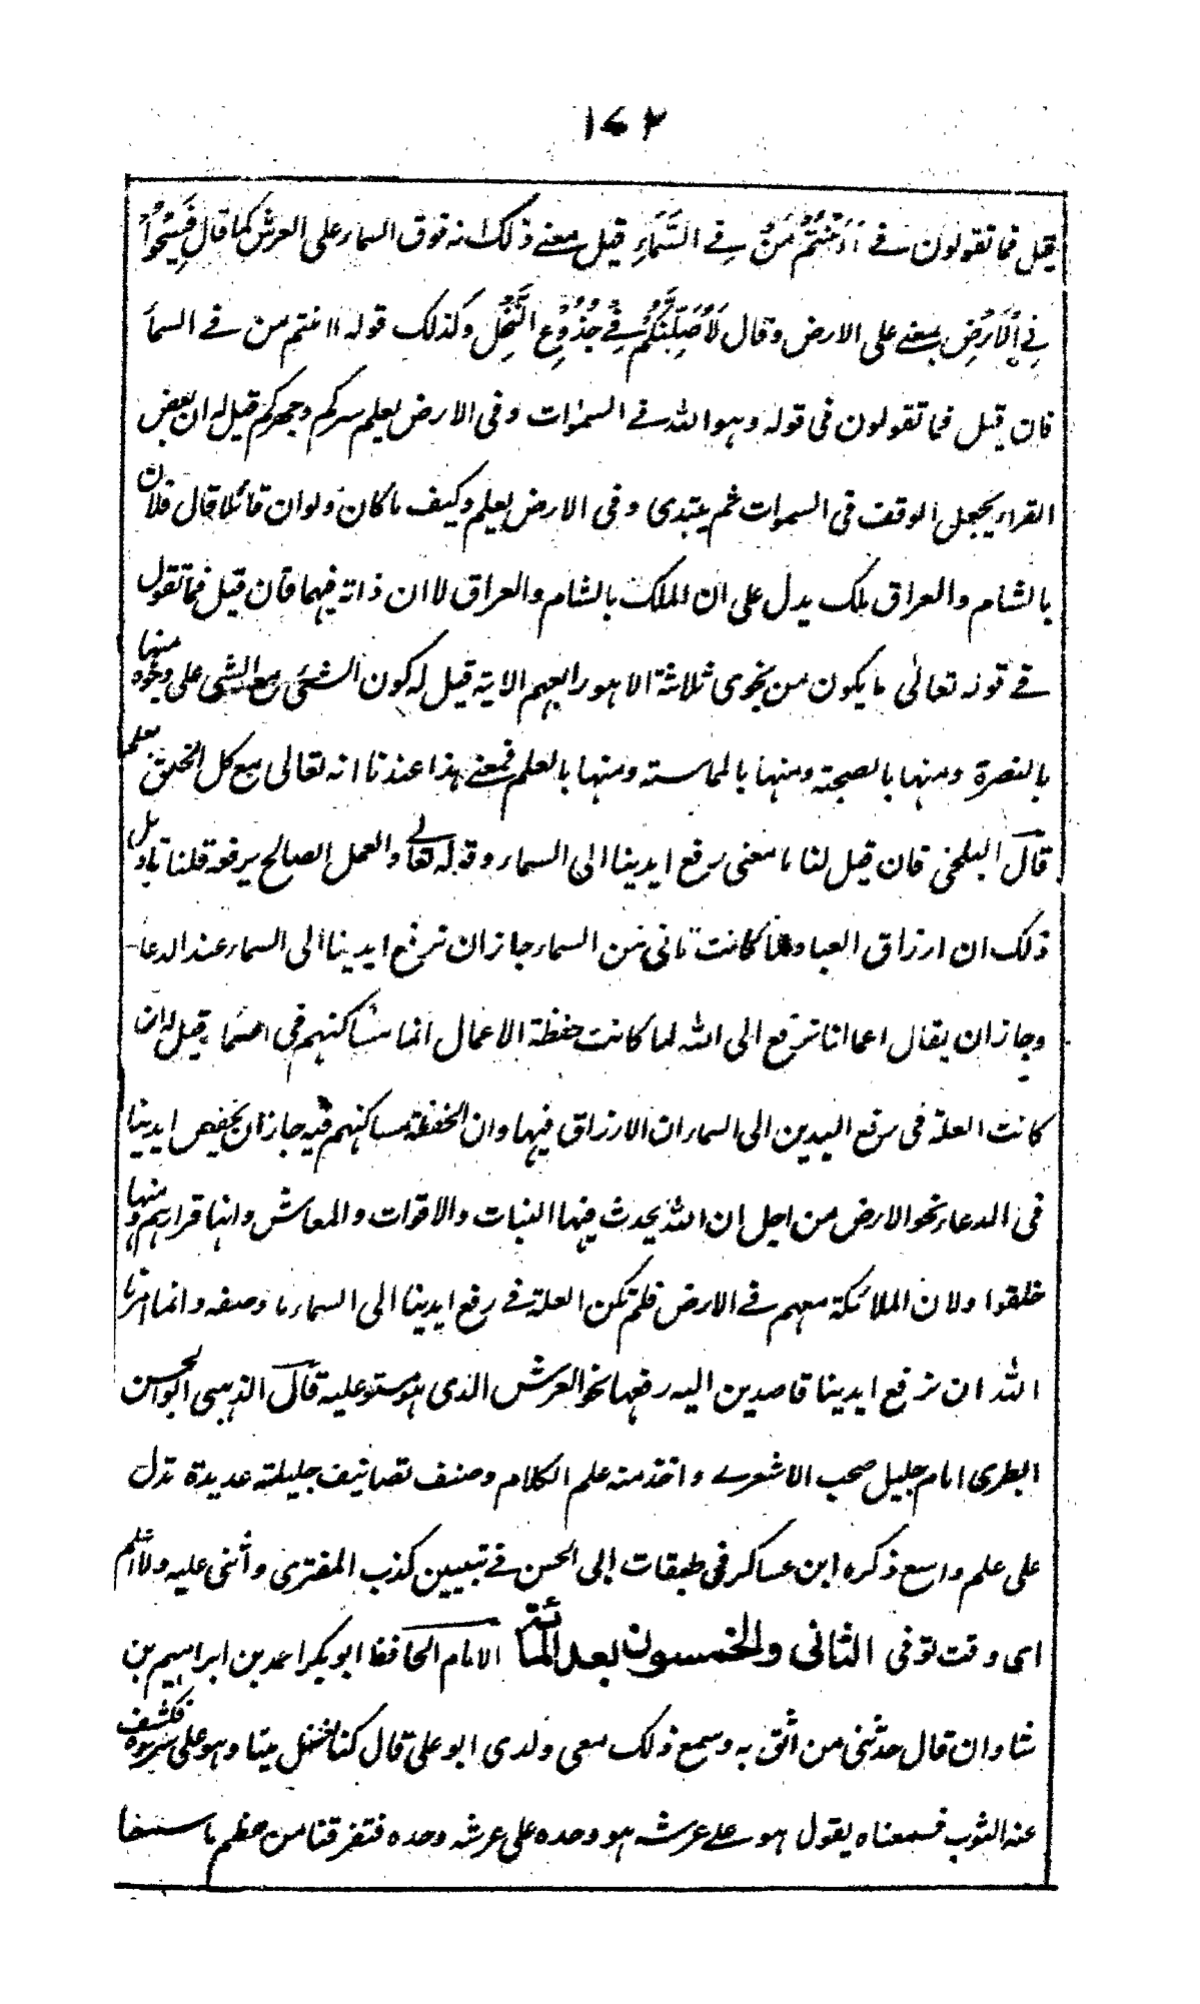 ١٧٢
قيل فما تقولون في ءَاَمِنْتُمْ مَنْ فِي السَّمَاءِ قيل معنى ذلك انه فوق السماء على العرش كما قال فَسِيْحُوْا
فِي الْاَرْضِ بمعنى على الارض وقال لَاُصَلِّبَنَّكُمْ فِيْ جُذُوْعِ النَّخْلِ وكذلك قوله ءامنتم من في السماء
فان قيل فما تقولون في قوله وهو الله في السموات وفي الارض يعلم سركم وجهركم قيل له ان بعض
القراء يجعل الوقف في السموات ثم يبتدى وفي الارض يعلم وكيف ما كان ولو ان قائلا قال فلان
بالشام والعراق ملك يدل على ان الملك بالشام والعراق لا ان ذاته فيهما فان قيل فما تقول
في قوله تعالى ما يكون من نجوى ثلاثة الا هو رابعهم الاية قيل له كون الشئ مع الشى على وجوه منها
بالنصرة ومنها بالصحبة ومنها بالمماسة ومنها بالعلم فمعنى هذا عندنا انه تعالى مع كل الخلق بعلمه
قال البلخى فان قيل لنا ما معنى رفع ايدينا الى السماء وقوله تعالى والعمل الصالح يرفعه قلنا تاويل
ذلك ان ارزاق العباد لما كانت تاتى من السماء جاز ان نرفع ايدينا الى السماء عند الدعاء
وجاز ان يقال اعمالنا ترفع الى الله لما كانت حفظة الاعمال انما مساكنهم في السماء قيل له ان
كانت العلة في رفع اليدين الى السماء ان الارزاق فيها وان الحفظة مساكنهم فيه جاز ان يخفض ايدينا
فى الدعاء نحو الارض من اجل ان الله يحدث فيها النبات والاقوات والمعاش وانها قرارهم ومنها
خلقوا ولان الملائكة معهم في الارض فلم تكن العلة في رفع ايدينا الى السماء ما وصفه وانما امرنا
الله ان نرفع ايدينا قاصدين اليه رفعها نحو العرش الذى هو مستو عليه قال الذهبى ابو الحسن
الطبرى امام جليل صحب الاشعرى واخذ منه علم الكلام وصنف تصانيف جليلة عديدة تدل
على علم واسع ذكره ابن عساكر فى طبقات ابى الحسن في تبيين كذب المفترى وأثنى عليه ولا اعلم
اى وقت توفى الثانى والخمسون بعد المائة الامام الحافظ ابو بكر احمد بن ابراهيم بن
شاذان قال حدثنى من اثق به وسمع ذلك معى ولدى ابو على قال كنا نغسل ميتا وهو على سريره فكشف
عنه الثوب فسمعناه يقول هو على عرشه هو وحده على عرشه وحده فتفرقنا من عظم ما سمعنا